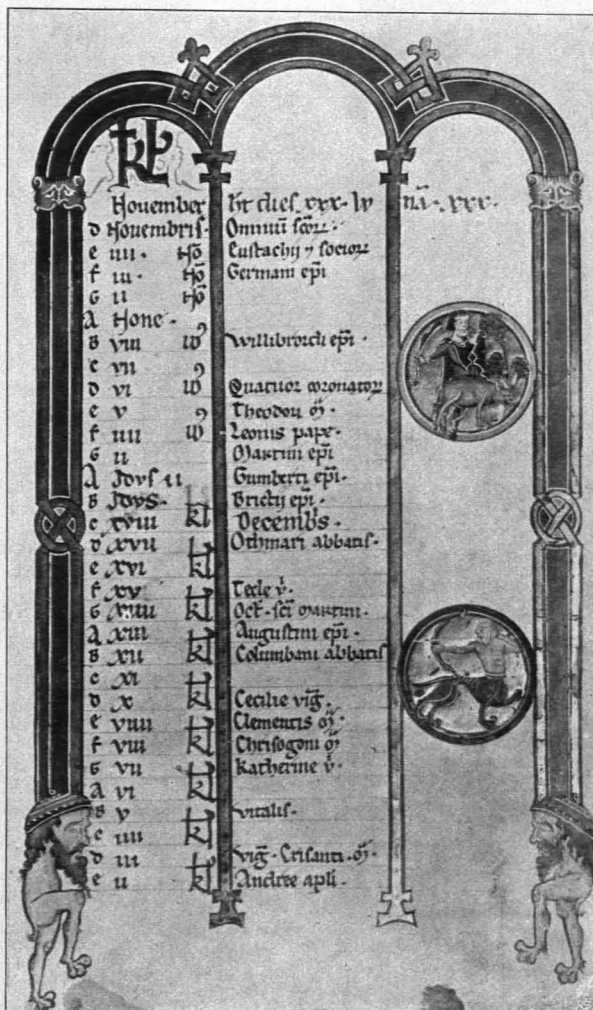 KL
November ht dies xxx · lv nā · xxx ·
d Novembris · Omniū scōrr
e iiii · No Eustachij ⁊ sociorr
f iii · No Germani epi
G ii No
A None ·
B viii id Willibrordi epi ·
c vii
d vi id Quatuor coronatorr
e v Theodori m̄ ·
f iiii id Leonis pape ·
G ii Martini epi
A Idvs ii Gumberti epi ·
B Idvs · Brictij epi ·
c xviii kl Decembs ·
d xvii Othmari abbatis ·
e xvi kl
f xv Tecle v̄ ·
G xiiii kl Oct · sci martini ·
A xiii Augustini epi ·
B xii kl Columbani abbatis
c xi
d x kl Cecilie virg̅ ·
e viiii Clementis m̄ ·
f viii kl Chrisogoni m̄
G vii Katherine v̄ ·
A vi kl
B v vitalis ·
c iiii kl
d iii vig̅ · Crisanti · m̄ ·
e ii kl Andree apli ·